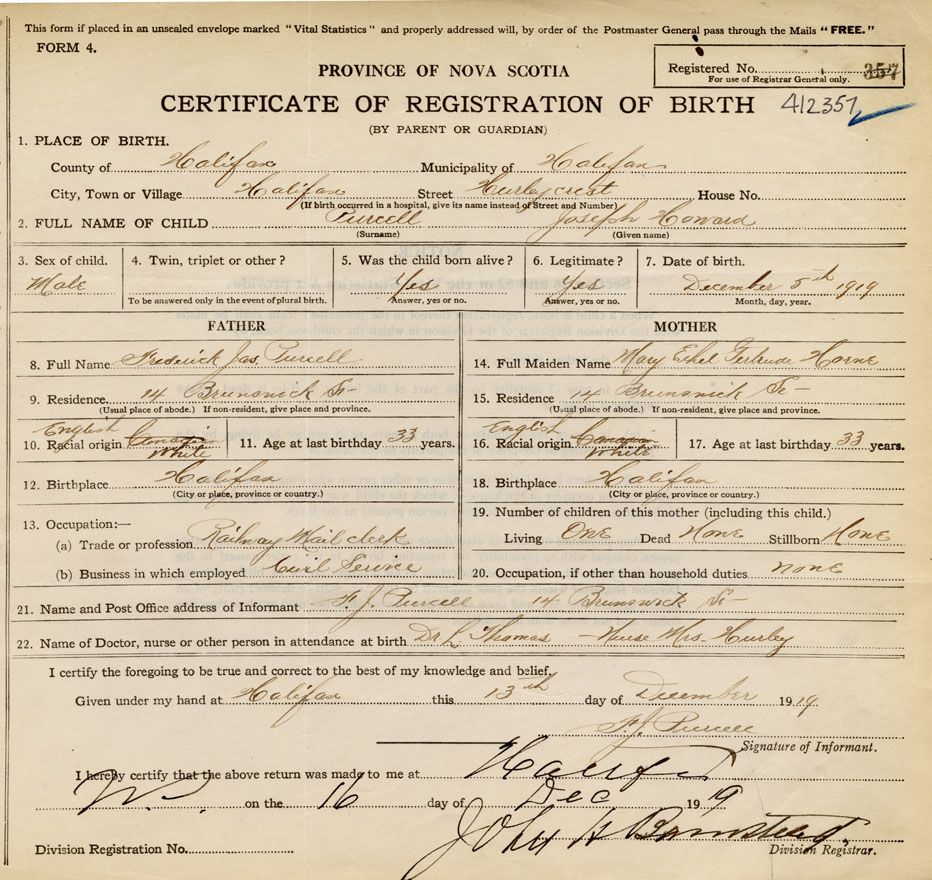 This form if placed in an unsealed envelope marked "Vital Statistics" and properly addressed will, by order of the Postmaster General pass through the Mails "FREE."
FORM 4.
Registered No. 357
For use of Registrar General only.
PROVINCE OF NOVA SCOTIA
CERTIFICATE OF REGISTRATION OF BIRTH 412357
(BY PARENT OR GUARDIAN)
1. PLACE OF BIRTH.
County of Halifax Municipality of Halifax
City, Town or Village Halifax Street Hurleycrest House No.
(If birth occurred in a hospital, give its name instead of Street and Number)
2. FULL NAME OF CHILD Purcell Joseph Howard
(Surname) (Given name)
3. Sex of child. 4. Twin, triplet or other? 5. Was the child born alive? 6. Legitimate? 7. Date of birth.
Male Yes Yes December 5th 1919
To be answered only in the event of plural birth. Answer, yes or no. Answer, yes or no. Month, day, year.
FATHER MOTHER
8. Full Name Frederick Jas. Purcell 14. Full Maiden Name Mary Ethel Gertrude Horne
9. Residence 14 Brunswick St 15. Residence 14 Brunswick St
(Usual place of abode.) If non-resident, give place and province. (Usual place of abode.) If non-resident, give place and province.
English English
10. Racial origin Canadian 11. Age at last birthday 33 years. 16. Racial origin Canadian 17. Age at last birthday 33 years.
White White
12. Birthplace Halifax 18. Birthplace Halifax
(City or place, province or country.) (City or place, province or country.)
13. Occupation:— 19. Number of children of this mother (including this child.)
(a) Trade or profession Railway Mail clerk Living One Dead None Stillborn None
(b) Business in which employed Civil Service 20. Occupation, if other than household duties none
21. Name and Post Office address of Informant F. J. Purcell 14 Brunswick St
22. Name of Doctor, nurse or other person in attendance at birth Dr L. Thomas - Nurse Mrs. Hurley
I certify the foregoing to be true and correct to the best of my knowledge and belief.
Given under my hand at Halifax this 13th day of December 1919.
F. J. Purcell
Signature of Informant.
I hereby certify that the above return was made to me at Halifax
N.S. on the 16 day of Dec 1919
John H
Division Registration No. Division Registrar.